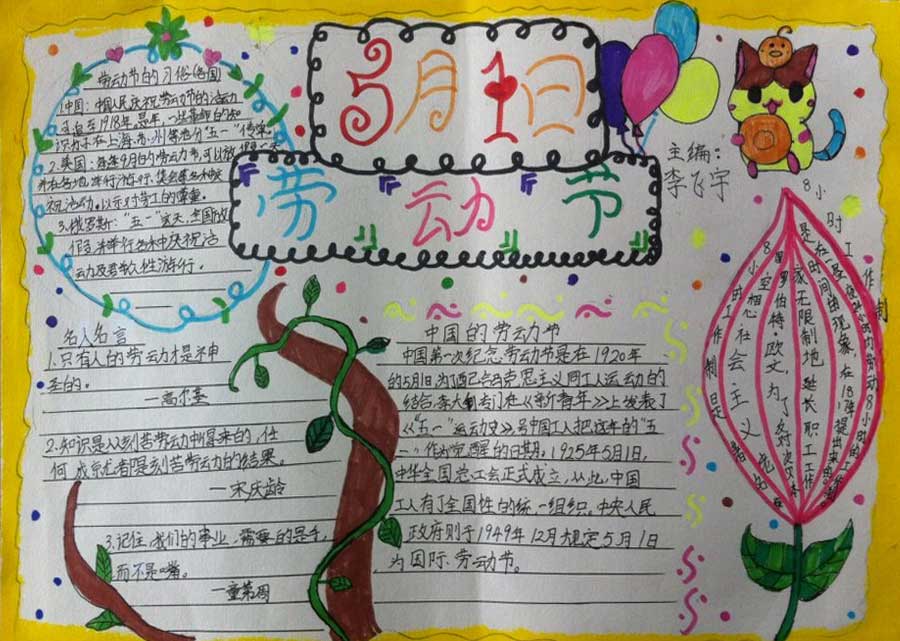 5月1日
劳动节
主编:
李飞宇
劳动节的习俗(各国)
1.中国:中国人民庆祝劳动节的活动
追至1918年。是年,一些革命的知
识分子在上海、苏州等地分"五一"传单。
2.美国:每年9月的劳动节,可以放假一天
并在各地举行游行、集会
祝活动,以示对劳工的尊重。
3.俄罗斯:"五一"这天,全国放
假,并举行各种庆祝活
动及群众性游行。
名人名言
1.只有人的劳动才是神
圣的。
—高尔基
2.知识是从刻苦劳动中得来的,任
何成就者是刻苦劳动的结果。
—宋庆龄
3.记住,我们的事业,需要的是手,
而不是嘴。
—童第周
中国的劳动节
中国第一次纪念劳动节是在1920年
的5月1日,为了配合马克思主义同工人运动的
结合,李大钊专门在《新青年》上发表了
《"五一"运动史》,号中国工人把这年的"五
一"作为觉醒的日期。1925年5月1日,
中华全国总工会正式成立,从此,中国
工人有了全国性的统一组织。中央人民
政府则于1949年12月规定5月1日
为国际劳动节。
8小时工作制
是在一昼夜24小时内劳动8小时的工作
时间的现象,在18提出来的
家无限制地延长职工工作
里罗伯特·欧文,为了反对资本
8空想社会主义者
小时工作制是